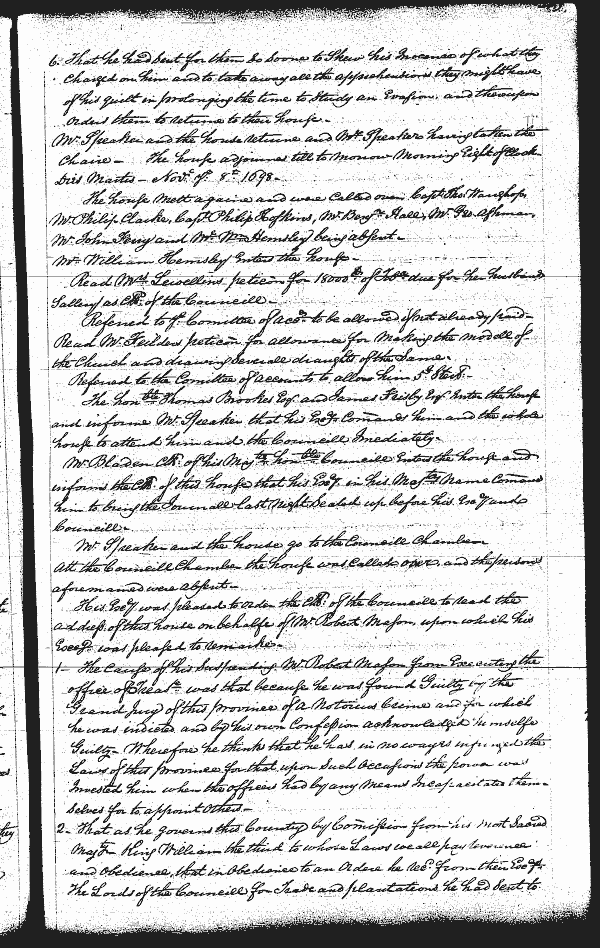 6. That he had sent for them so soone to Shew his Inocence of what they
Charged on him and to take away all the apprehensions they might have
of his guilt in prolonging the time to Study an Evasion, and thereupon
orders them to returne to their house.
Mr. Speaker and the house returne and Mr. Speaker having taken the
Chaire - The house adjournes till to morrow Morning Eight of Clock
Dies Martis - Novr. ye 8th 1698.
The house mett againe and were called over Capt. Tho: Waughop,
Mr. Philip Clarke, Capt. Philip Hoskins, Mr. Benjn. Hall, Mr. Geo: Ashman,
Mr. John Ferry and Mr. Wm. Hemsley being absent.
Mr. William Hemsley Enters the house.
Read Mrs. Lewellins peticon for 18000 lb of Tobo. due for her husbands
Sallery as Clk. of the Councill.
Referred to ye. Comittee of accots. to be allowed if not already paid.
Read Mr. Feilders peticon for allowance for making the moddle of
the Church and drawing severall draughts of the Same.
Referred to the Comittee of accounts to allow him
The honble Thomas Brookes Esq. and James Frisby Esqr. Enter the house
and informe Mr. Speaker that his Excy. Comands him and the whole
house to attend him and the Councill Imediately.
Mr. Bladen Clk. of his Majtys honble Councill Enters the house and
informs the Clk. of this house that his Excy. in his Majtys Name Comand
him to bring the Journall last Night Sealed up before his Excy. and
Councill.
Mr. Speaker and the house go to the Councill Chamber
Att the Councill Chamber the house was Called over, and the persons
aforenamed were absent.
His Excy. was pleased to order the Clk. of the Councill to read the
address of this house on behalfe of Mr. Robert Mason, upon which his
Excey. was pleased to remarke.
1- The cause of his Suspending Mr. Robert Mason from Executing the
office of Treasr. was that because he was found Guilty by the
Grand Jury of this province of A Notorious Crime and for which
he was indicted and by his own Confession acknowledged himselfe
Guilty - Wherefore he thinks that he has in no wayes infringed the
Laws of this province for that upon Such Occasions the power was
Invested him when the officers had by any Means Incapacitated them-
selves for to appoint Others.
2- That as he governs this Country by Comission from his most Sacred
Majty King William the third to whose Laws we all pay reverence
and Obedience, that in Obedience to an Order he recd. from their Excys.
The Lords of the Councill for Trade and plantations he had sent to